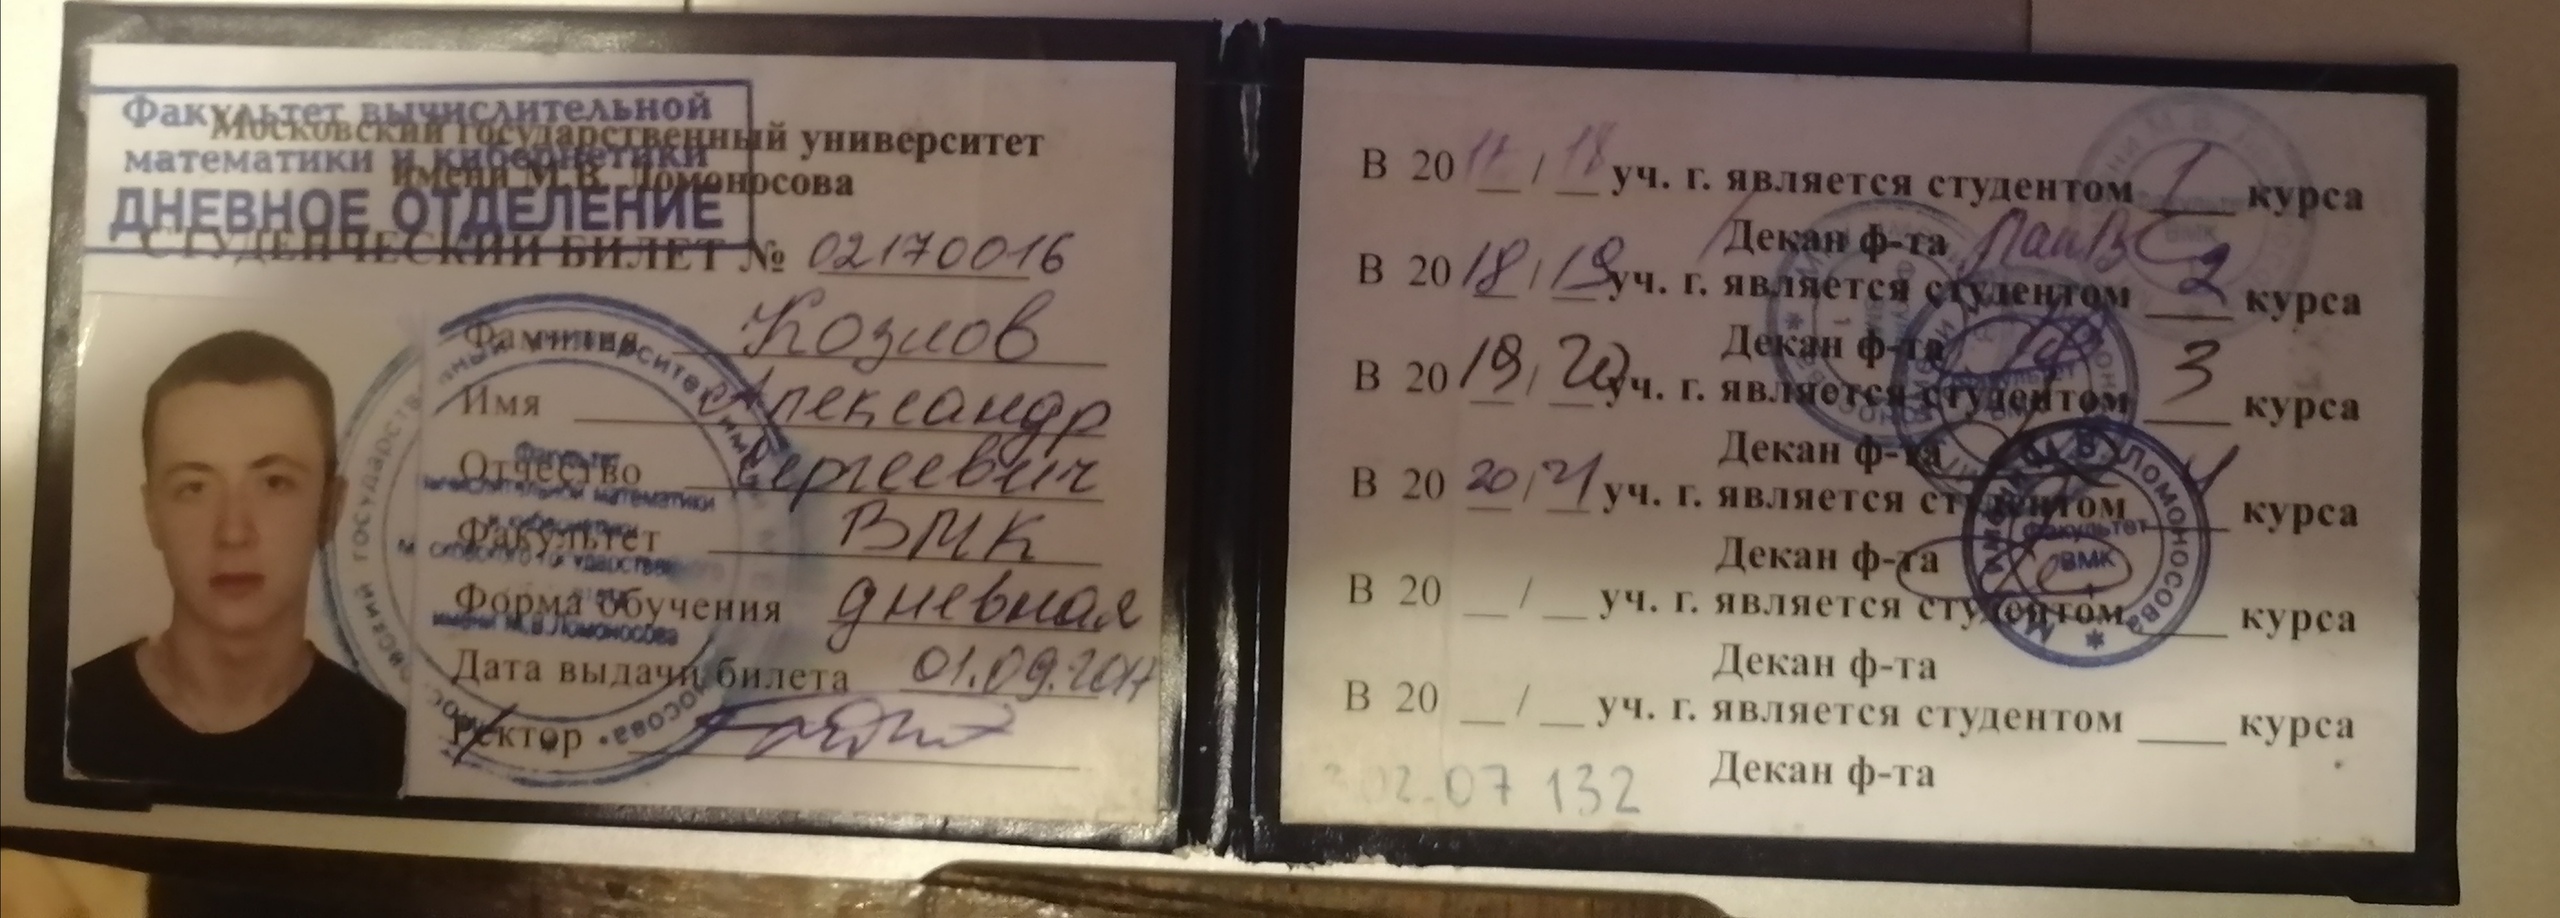 Факультет вычислительной
математики и кибернетики
ДНЕВНОЕ ОТДЕЛЕНИЕ
Московский государственный университет
имени М.В. Ломоносова
СТУДЕНЧЕСКИЙ БИЛЕТ № 02170016
Фамилия Козлов
Имя Александр
Отчество Сергеевич
Факультет ВМК
Форма обучения дневная
Дата выдачи билета 01.09.2017
Ректор
Факультет
вычислительной математики
и кибернетики
Московского государственного
имени М.В.Ломоносова
В 2017/18 уч. г. является студентом 1 курса
Декан ф-та
В 2018/19 уч. г. является студентом 2 курса
Декан ф-та
В 2019/20 уч. г. является студентом 3 курса
Декан ф-та
В 2020/21 уч. г. является студентом 4 курса
Декан ф-та
В 20__/__ уч. г. является студентом ___ курса
Декан ф-та
В 20__/__ уч. г. является студентом ___ курса
Декан ф-та
имени М.В. Ломоносова
факультет
ВМК
02.07 132